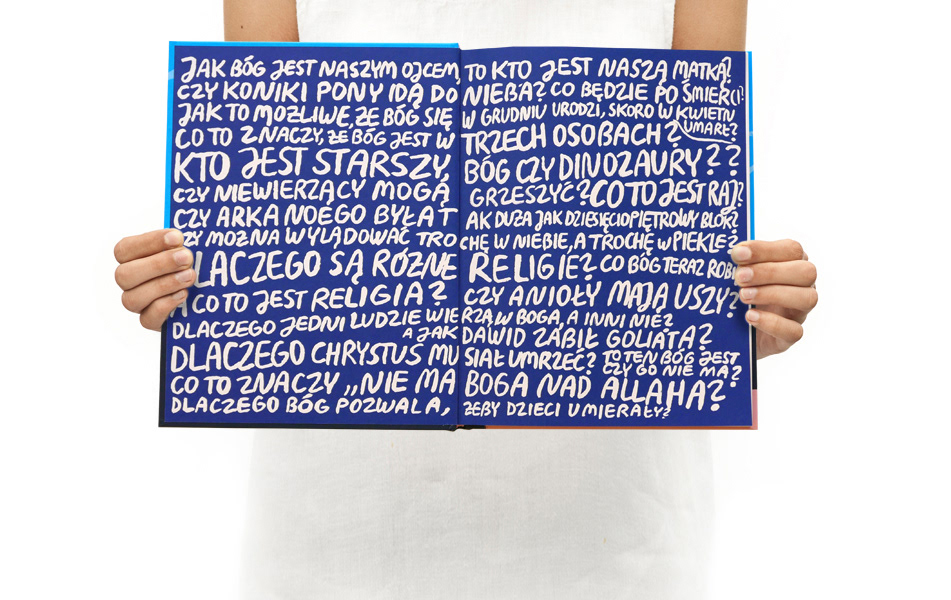 JAK BÓG JEST NASZYM OJCEM, TO KTO JEST NASZĄ MATKĄ?
CZY KONIKI PONY IDĄ DO NIEBA? CO BĘDZIE PO ŚMIERCI?
JAK TO MOŻLIWE, ŻE BÓG SIĘ W GRUDNIU URODZI, SKORO W KWIETNIU UMARŁ?
CO TO ZNACZY, ŻE BÓG JEST W TRZECH OSOBACH?
KTO JEST STARSZY, BÓG CZY DINOZAURY??
CZY NIEWIERZĄCY MOGĄ GRZESZYĆ? CO TO JEST RAJ?
CZY ARKA NOEGO BYŁA TAK DUŻA JAK DZIESIĘCIOPIĘTROWY BLOK?
CZY MOŻNA WYLĄDOWAĆ TROCHĘ W NIEBIE, A TROCHĘ W PIEKLE?
DLACZEGO SĄ RÓŻNE RELIGIE? CO BÓG TERAZ ROBI?
A CO TO JEST RELIGIA? CZY ANIOŁY MAJĄ USZY?
DLACZEGO JEDNI LUDZIE WIERZĄ W BOGA, A INNI NIE?
A JAK DAWID ZABIŁ GOLIATA?
DLACZEGO CHRYSTUS MUSIAŁ UMRZEĆ? TO TEN BÓG JEST CZY GO NIE MA?
CO TO ZNACZY „NIE MA BOGA NAD ALLAHA?
DLACZEGO BÓG POZWALA, ŻEBY DZIECI UMIERAŁY?